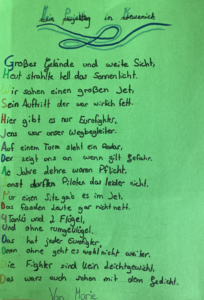 Mein Projekttag in
Großes Gelände und weite Sicht,
Heut strahlte hell das Sonnenlicht.
Wir sahen einen großen Jet,
Sein Auftritt der war wirklich fett.
Hier gibt es nur Eurofighter,
Jens war unser Wegbegleiter.
Auf einem Turm steht ein Radar,
Der zeigt uns an wenn gilt Gefahr.
Jahre dürfen waren Pflicht,
Sonst dürfen Piloten das leider nicht.
Nur einen Sitz gab es im Jet,
Das fanden Leute gar nicht nett.
4 Tanks und 2 Flügel,
Und ohne
Das hat jeder Eurofighter,
Denn ohne geht es wohl nicht weiter.
Die Fighter sind kein Leichtgewicht,
Das wars auch schon mit dem Gedicht.
Von Marie